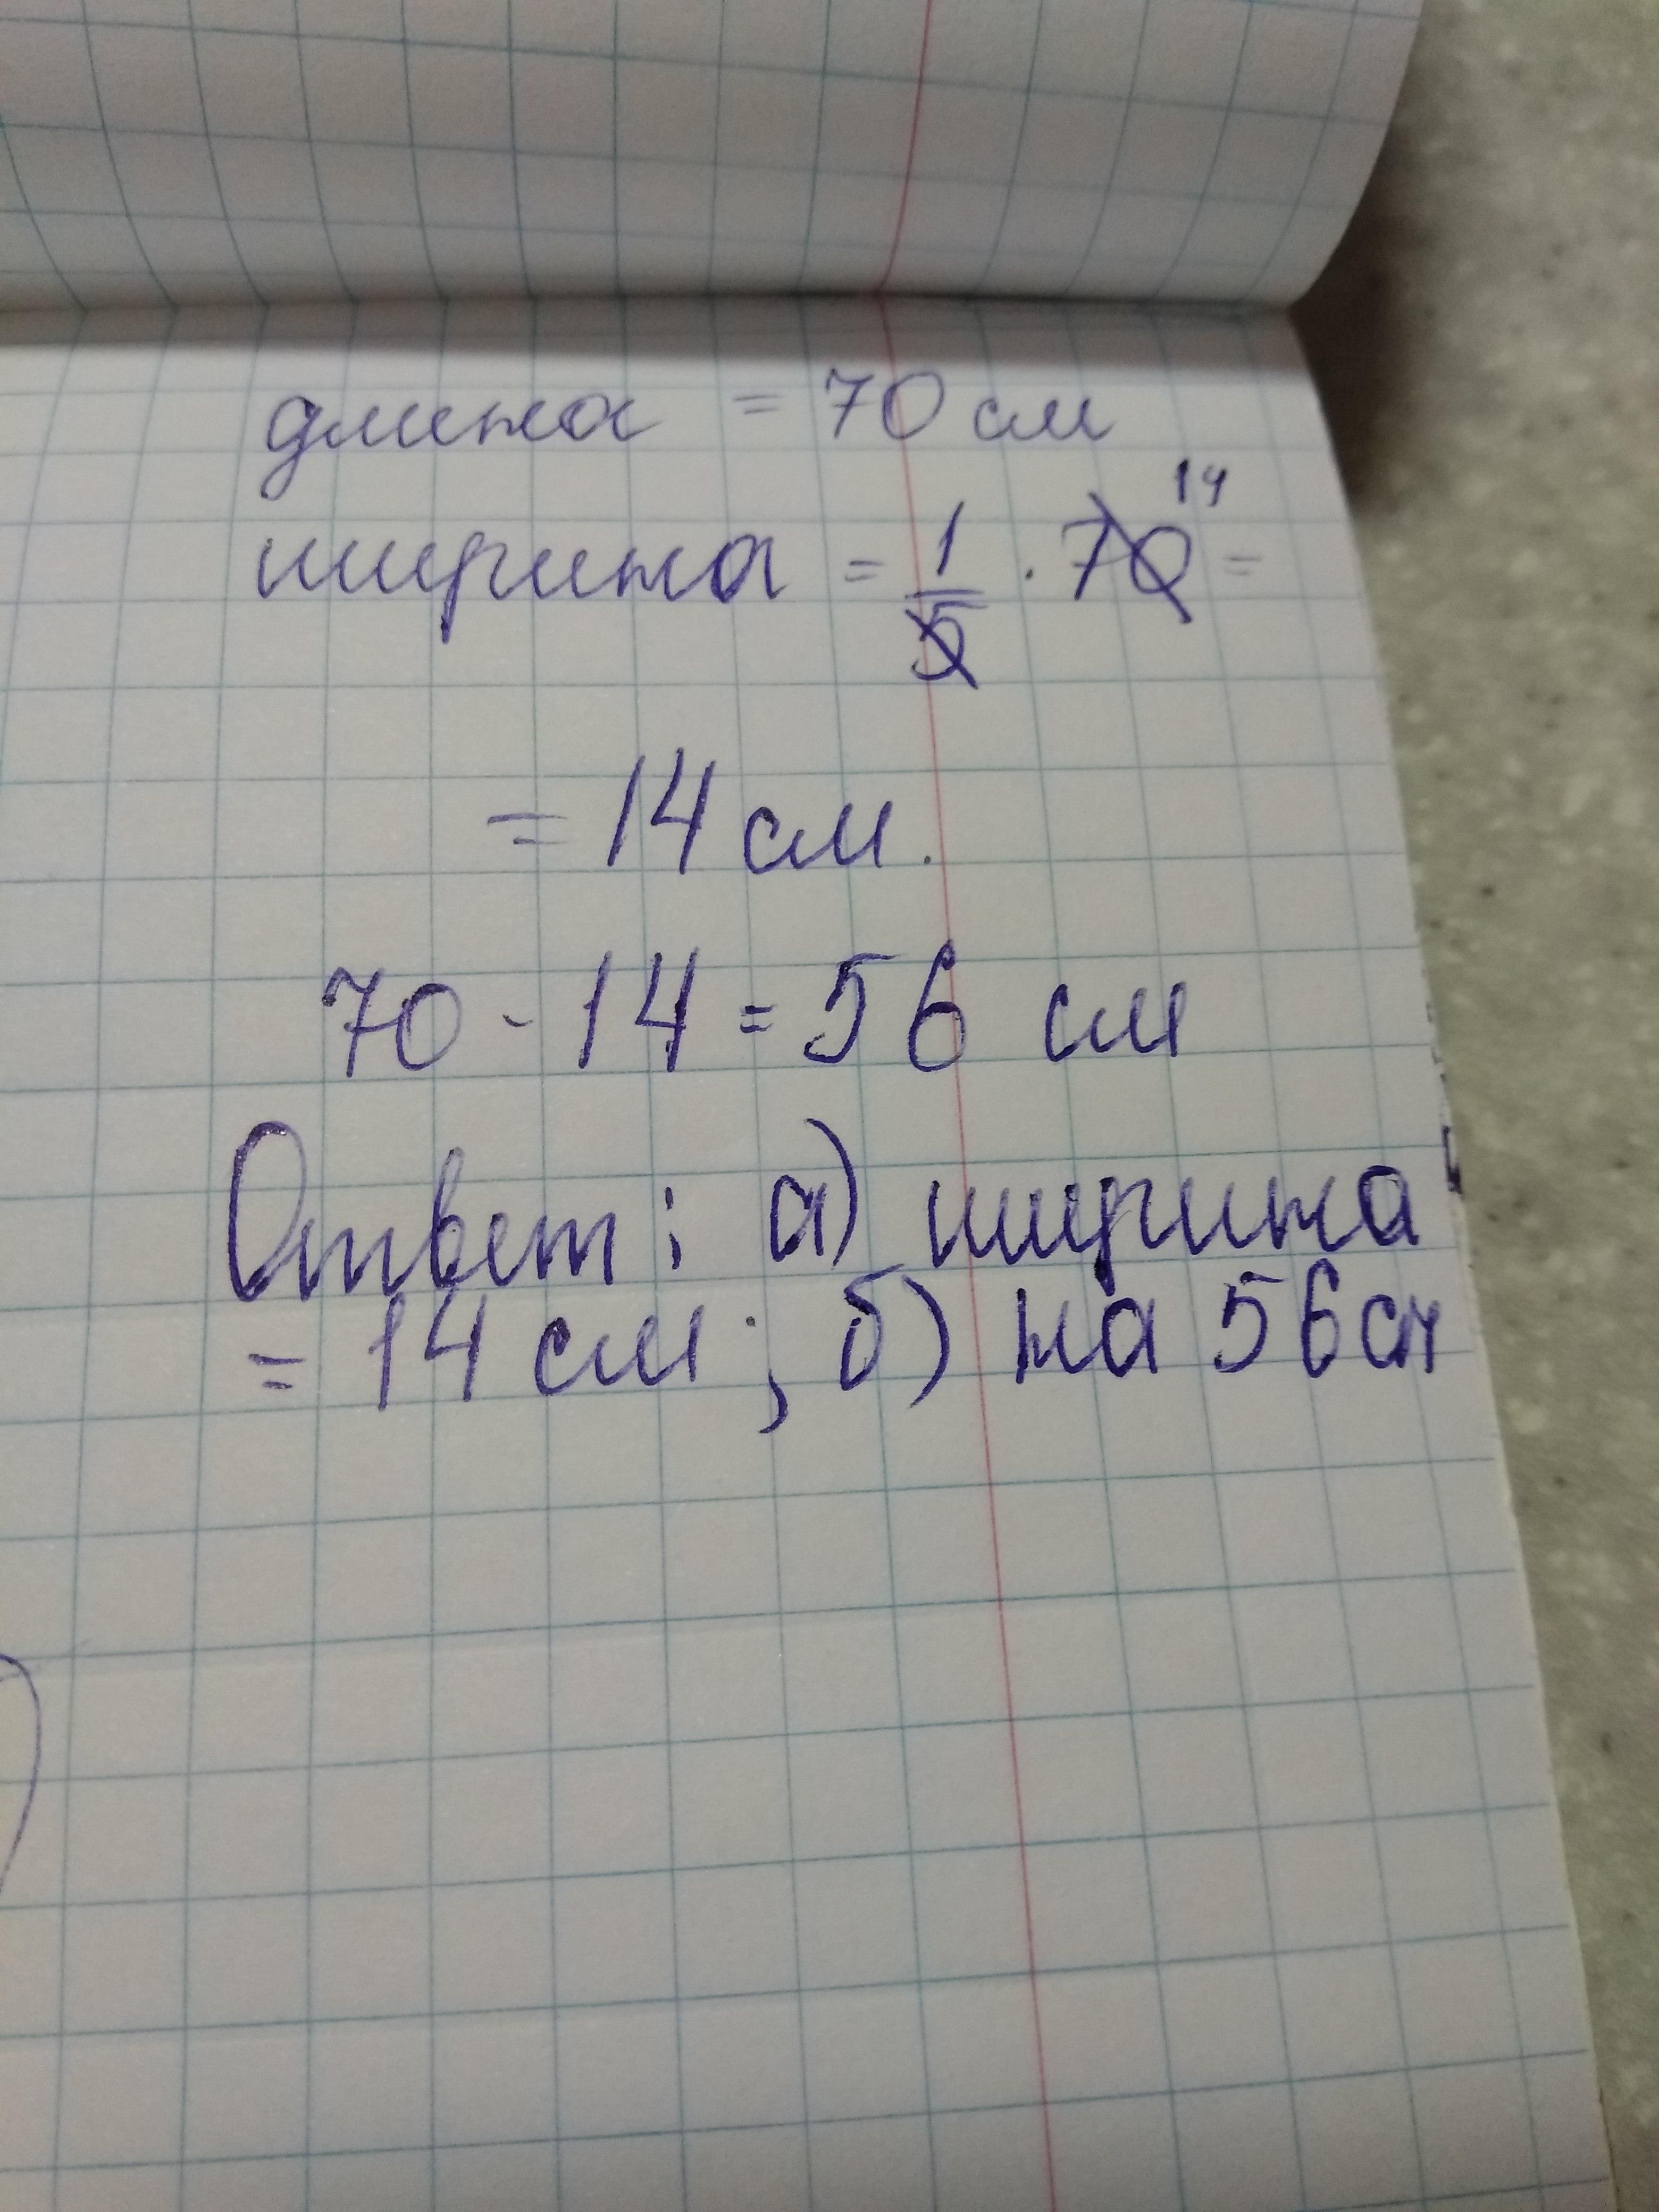 длина = 70 см
ширина = 1/5 · 70 14 =
= 14 см.
70 - 14 = 56 см
Ответ: а) ширина
= 14 см; б) на 56см